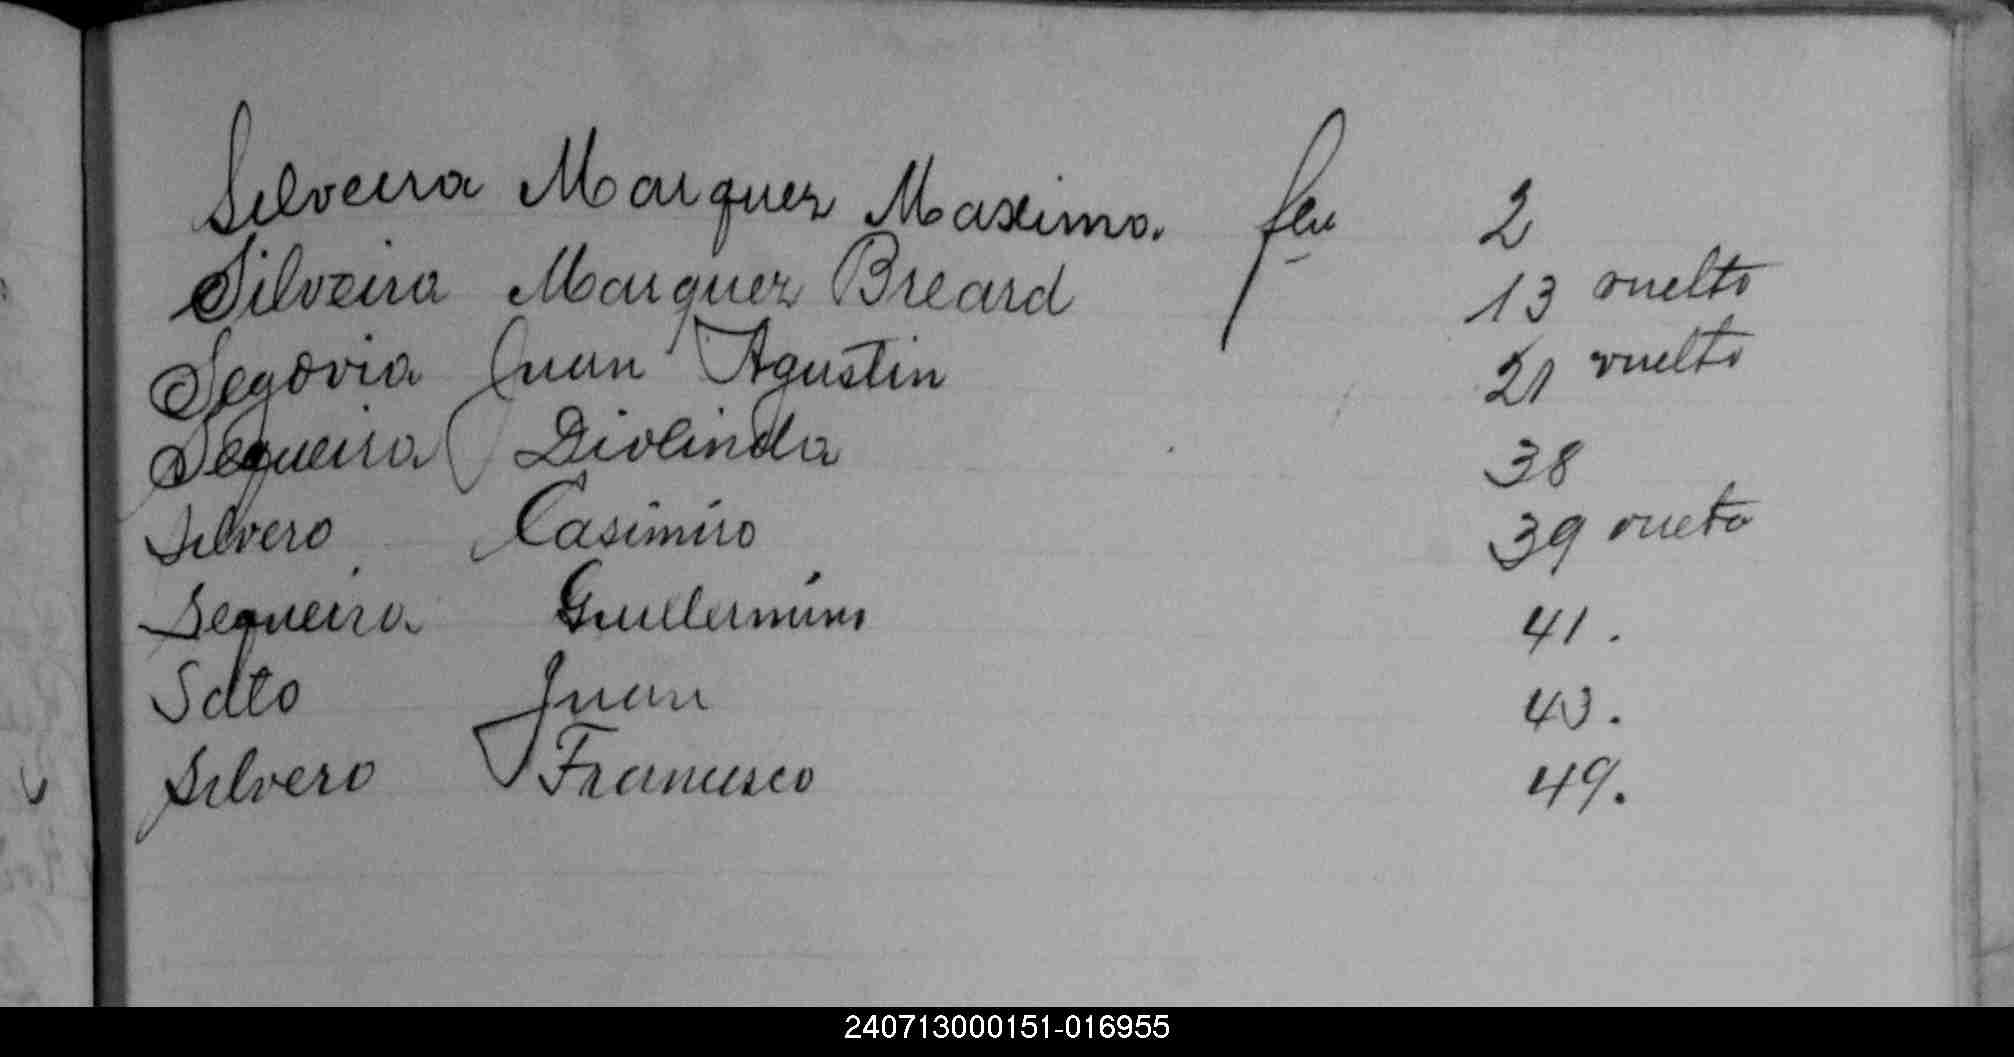 Silveira Marquez Maximo. 2
Silveira Marquez Breard 13 vuelto
Segovia Juan Agustin 21 vuelto
Sequeira Diolinda 38
Silvero Casimiro 39 vueto
Sequeira Guillermino 41.
Soto Juan 43.
Silvero Francisco 49.
240713000151-016955